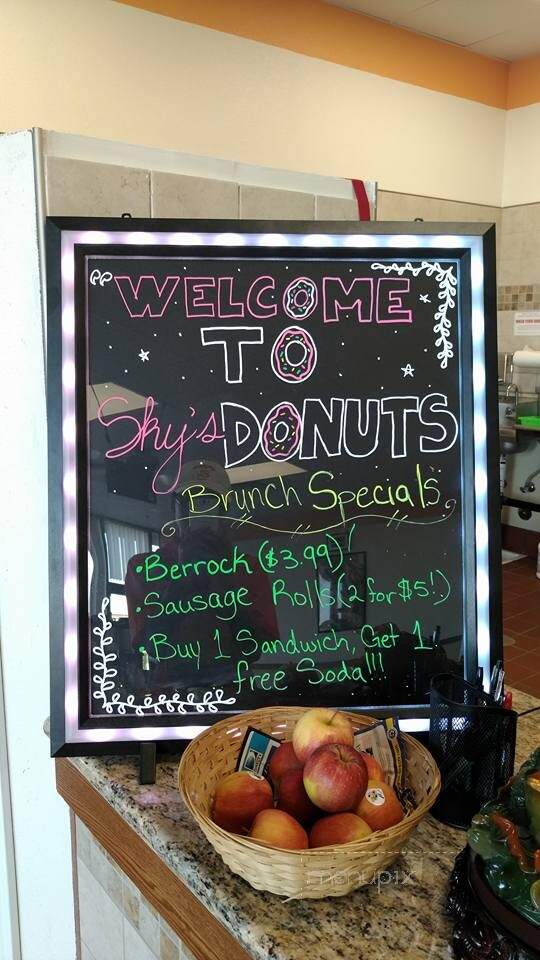 WELCOME
TO
Sky's DONUTS
Brunch Specials
•Berrock ($3.99)!
•Sausage Rolls (2 for $5!)
•Buy 1 Sandwich, Get 1
free Soda!!!
menupix